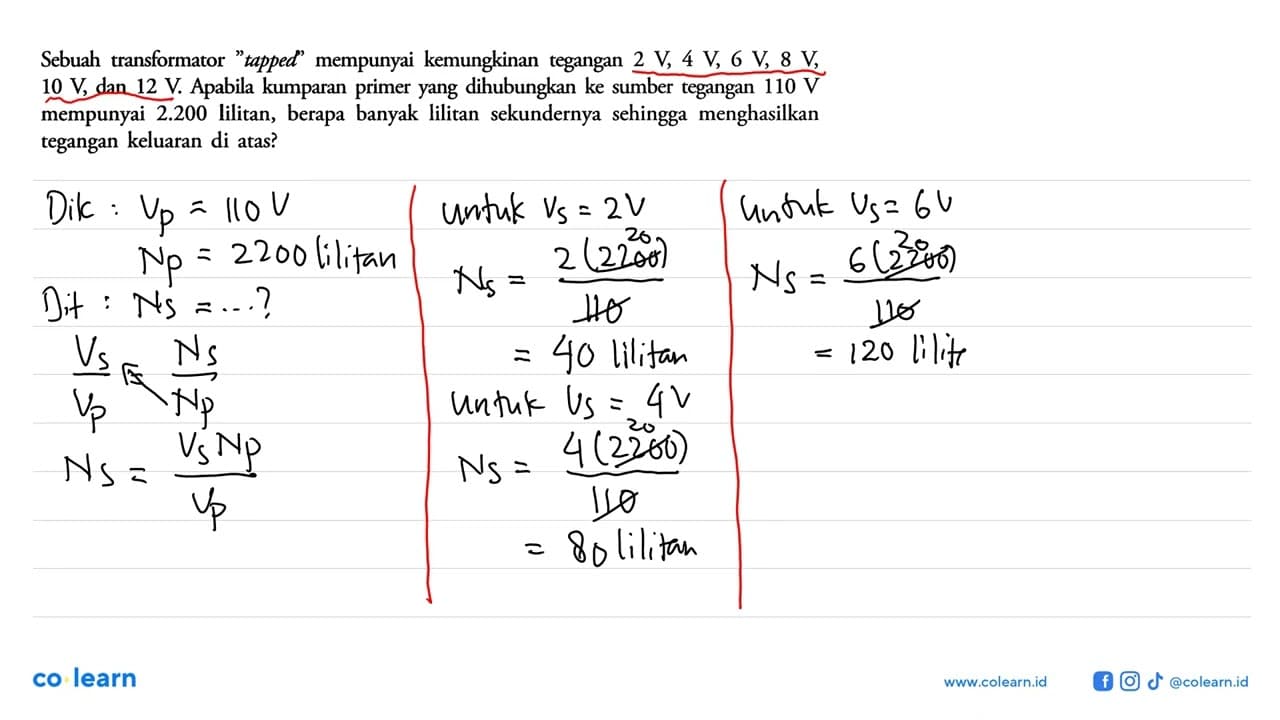 Sebuah transformator "tapped" mempunyai kemungkinan tegangan 2 V, 4 V, 6 V, 8 V,
10 V, dan 12 V. Apabila kumparan primer yang dihubungkan ke sumber tegangan 110 V
mempunyai 2.200 lilitan, berapa banyak lilitan sekundernya sehingga menghasilkan
tegangan keluaran di atas?
Dik : Vp = 110 V
Np = 2200 lilitan
Dit : Ns = ...?
Vs/Vp = Ns/Np
Ns = Vs Np / Vp
untuk Vs = 2V
20
Ns = 2(2200)/110
= 40 lilitan
untuk Vs = 4V
20
Ns = 4(2200)/110
= 80 lilitan
untuk Vs = 6V
20
Ns = 6(2200)/110
= 120 lilit
co learn
www.colearn.id
@colearn.id